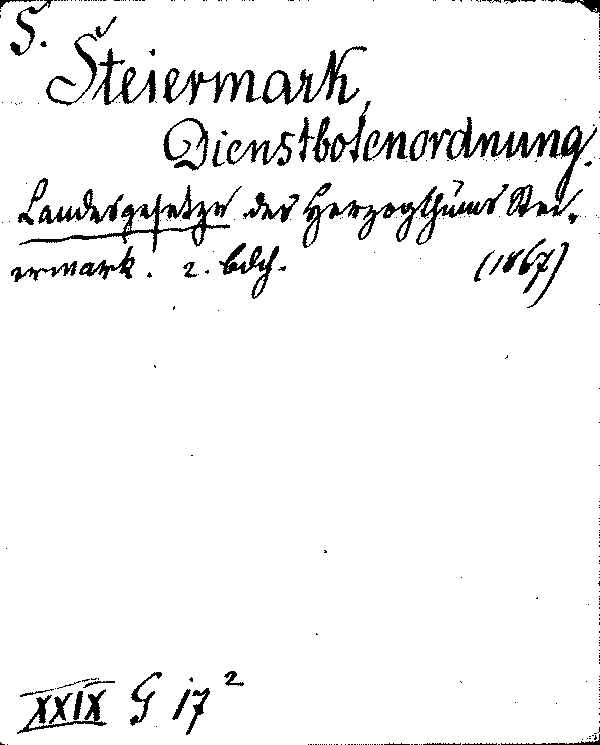 S.
Steiermark,
Dienstbotenordnung.
Landesgesetze des Herzogthums Stei-
ermark. 2. bdch. (1867)
XXIX G 17²